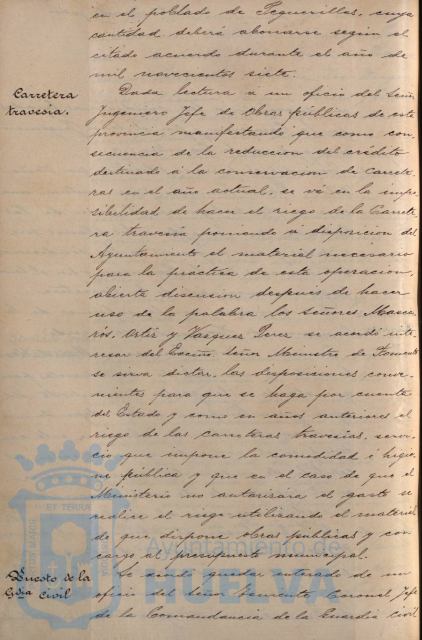 en el poblado de Peguerillas, cuya
cantidad deberá abonarse según el
citado acuerdo durante el año de
mil novecientos siete.
Carretera
travesía.
Dada lectura á un oficio del Señor
Ingeniero Jefe de Obras públicas de esta
provincia manifestando que como con
secuencia de la reduccion del crédito
destinado á la conservacion de carrete
ras en el año actual, se vé en la impo
sibilidad de hacer el riego de la Carrete
ra travesia poniendo á disposicion del
Ayuntamiento el material necesario
para la práctica de esta operacion,
abierta discusion despues de hacer
uso de la palabra los señores Masca
rós, Ortiz y Vazquez Perez se acordó inte
resar del Excmo. Señor Ministro de Fomento
se sirva dictar las disposiciones conve
nientes para que se haga por cuenta
del Estado y como en años anteriores el
riego de las carreteras travesias, servi
cio que impone la comodidad é higie
ne pública y que en el caso de que el
Ministerio no autorizara el gasto se
realice el riego utilizando el material
de que dispone obras públicas y con
cargo al presupuesto municipal.
Puesto de la
Gdia Civil
Se acordó quedar enterado de un
oficio del Señor Teniente Coronel Jefe
de la Comandancia de la Guardia Civil
ET TERRÆ
Ayuntamiento de
HUELVA